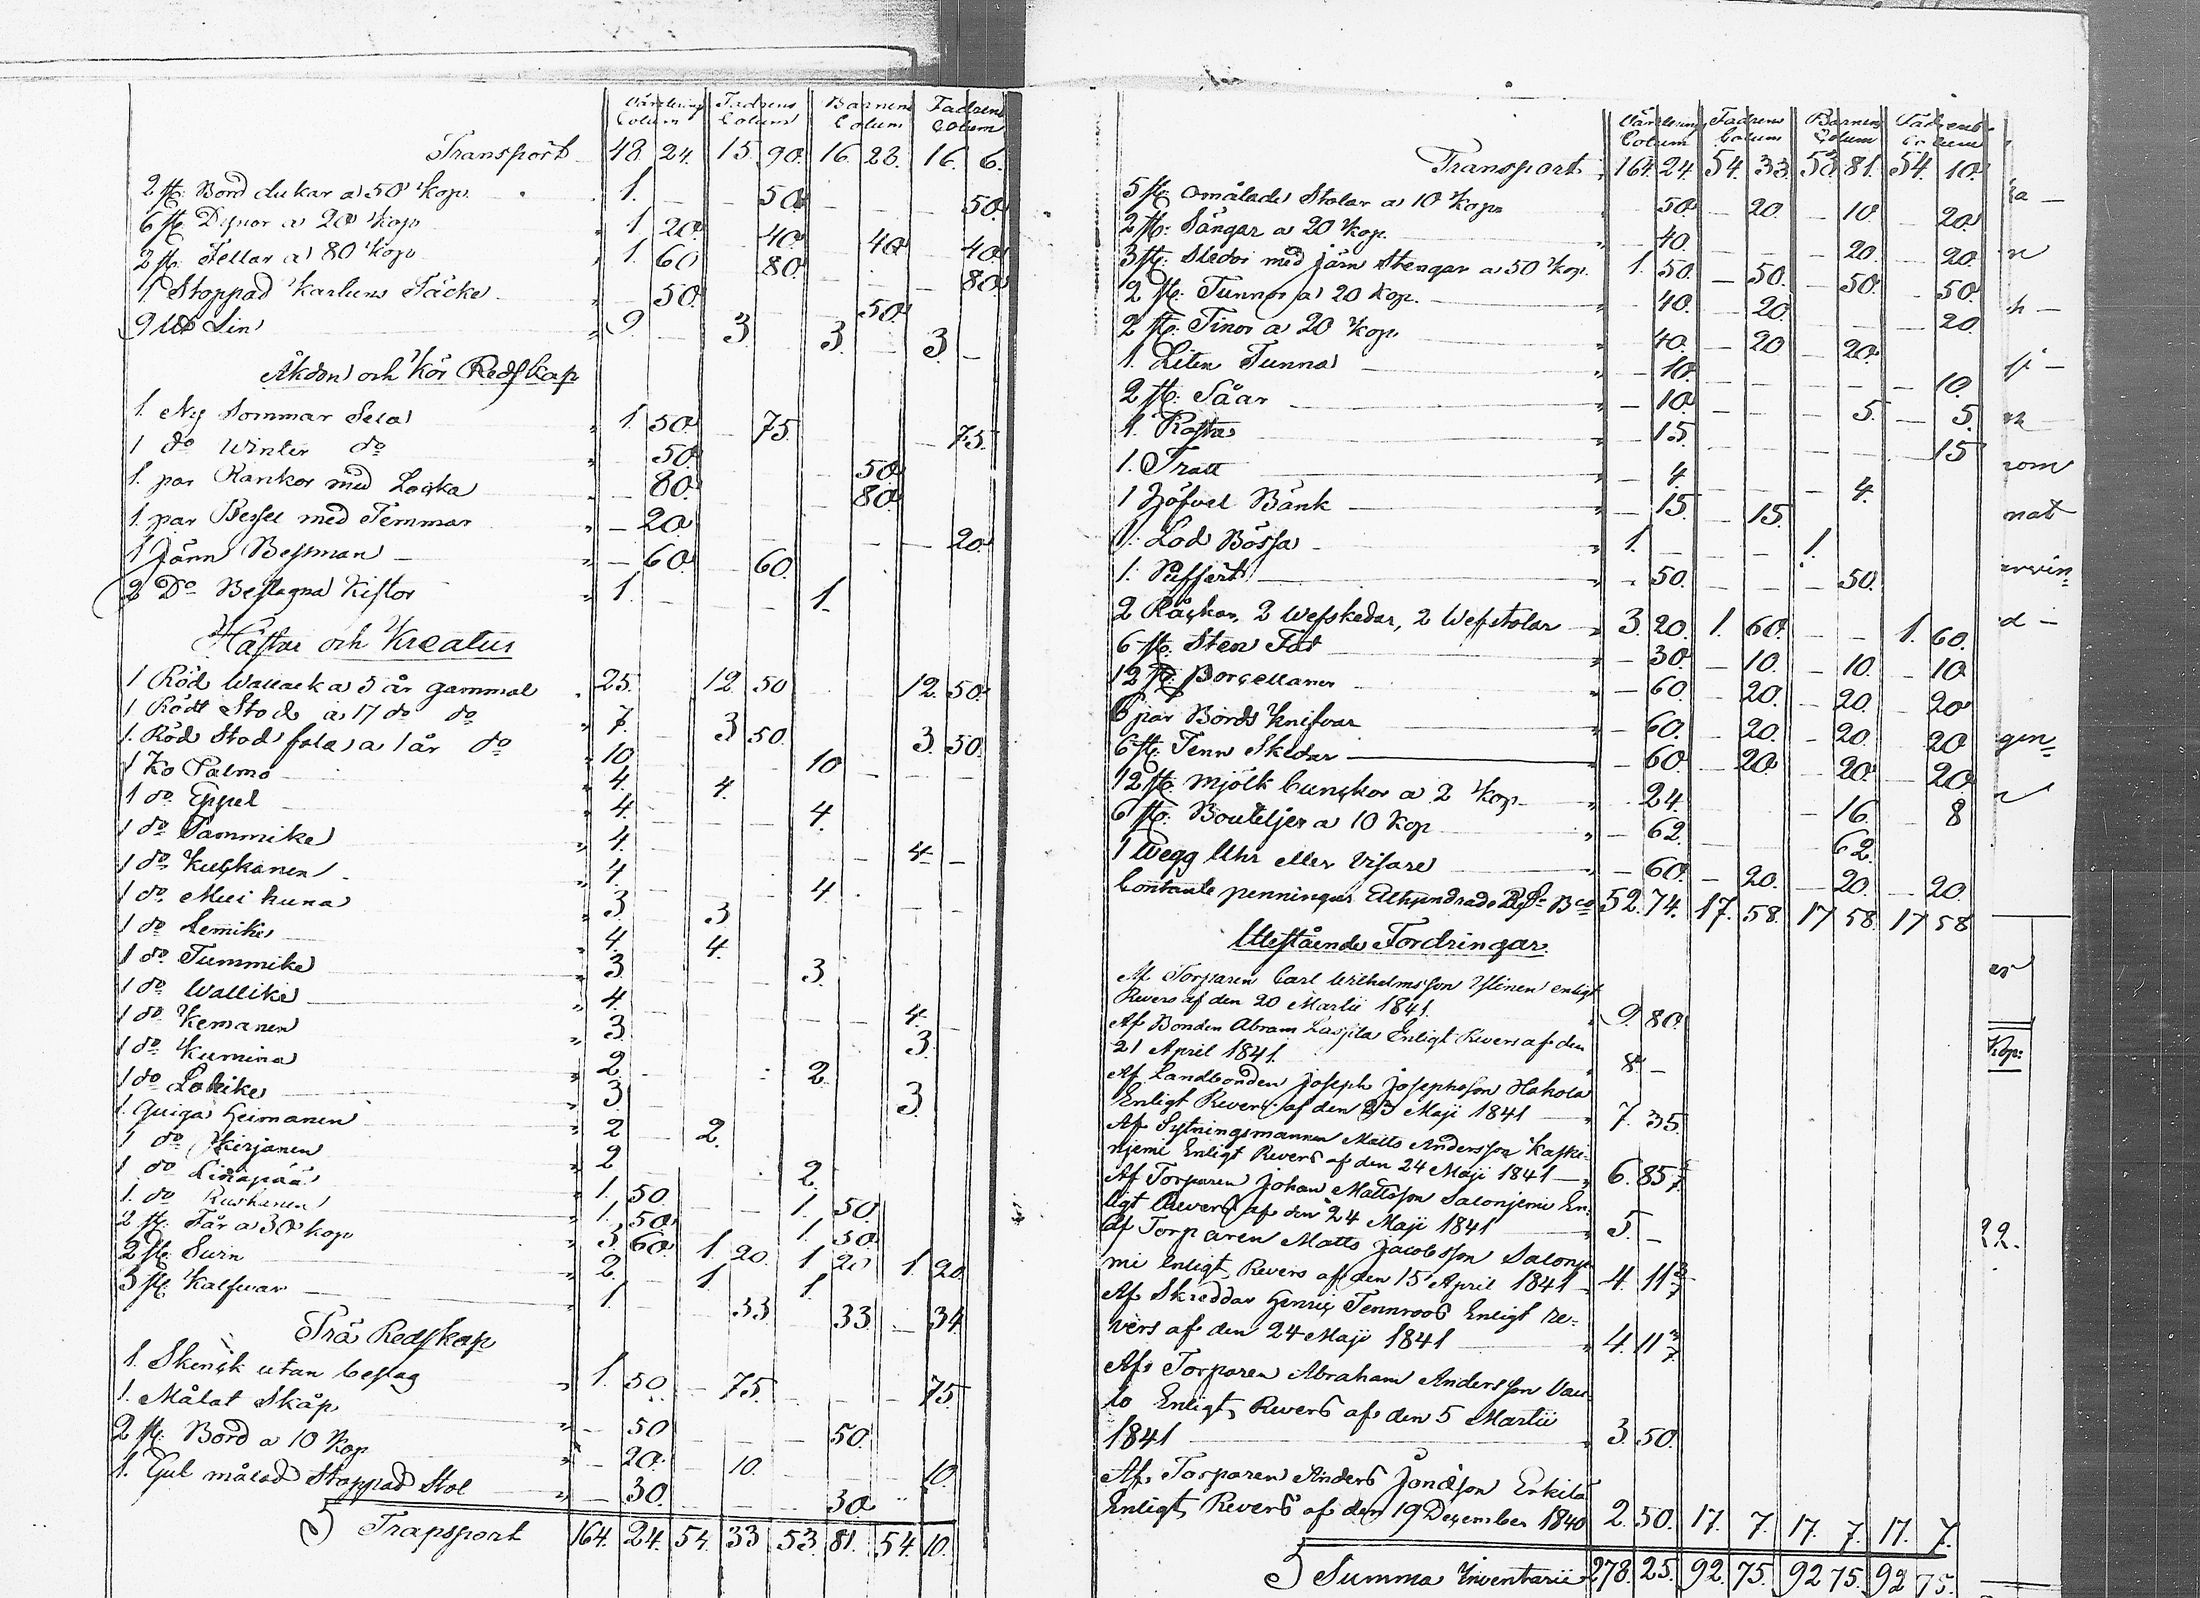 Värderings Colum Fadrens Colum Barnens Colum Fadrens Colum
Transport 48. 24. 15. 90. 16. 28. 16. 6.
2 st. Bord dukar a 50 kop. 1. — — 50. — — — 50.
6 st. Dynor a 20 kop 1 20. — 40. — 40. — 40.
2 st. Fellar a 80 kop 1. 60 — 80. — — — 80.
1 Stoppad Karluns Täcke — 50. — — — 50.
9 Lin 9. — 3. — 3. — 3. —
Åkdon och Kör Redskap
1. Ny Sommar Sela 1. 50. — 75. — — — 75.
1 do Winter do 50. — — — 50.
1. par Kankor med Lacka — 80. — — — 80.
1. par Bessel med Temmar — 20. — — — — — 20.
1 Järn Bessman — 60. — 60.
2 Do Beslagna Kistor 1. — — — 1.
Hästar och Kreatur
1 Röd Wallack a 5 år gammal 25. 12 50 12. 50.
1 Rödt Stod a 17 do do 7. 3 50. 3. 50.
1. Röd Stod fola a 1 år do 10. — — — 10 — — —
1 Ko Palmo 4. — 4.
1 do Eppel 4. — — — 4.
1 do Tammike 4. — — — — — 4. —
1 do Kuckanen 4. — — — 4.
1 do Muikuna 3. — 3 — — — — —
1 do Lemike 4. — 4.
1 do Tummike 3. — — — 3.
1 do Wallike 4. — — — — — 4.
1 do Kemanen 3. — — — — — 3.
1 do Kumina 2. — — — 2.
1 do Lotrike 3. — — — — — 3.
1. Quiga Heimanen 2. — 2.
1 do Kirjanen 2. — — — 2.
1 do 1. 50. — — 1. 50.
1. do Ruskanen 1. 50. 1. 50.
2 st. Får a 30 kop 3. 60. 1. 20. 1 20 1. 20.
2 st. Swin 2. 1. 1.
3 st. Kalfwar 1. — — 33 — 33. — 34.
Trä Redskap
1. Skenck utan beslag 1. 50. — 75. — — — 75.
1. Målat Skåp — 50. 50.
2 st. Bord a 10 kop — 20. — 10. 10.
1. Gul målad Stoppad Stol — 30. — — — 30.
Transport 164. 24. 54. 33 53. 81. 54. 10.
Värderings Colum Fadrens Colum Barnens Colum Fadrens Colum
Transport 164. 24. 54. 33. 53. 81. 54. 10.
5 st. omålade Stolar a 10 kop 50. — 20. — 10. 20.
2 st. Sängar a 20 kop. — 40. — — — 20. — 20.
3 st. Slädor med järn Stengar a 50 kop. 1. 50. — 50. — 50. 50.
2 st. Tunnor a 20 kop. — 40. — 20. — — — 20.
2 st. Tinor a 20 kop — 40. — 20 — 20.
1. Liten Tunna — 10. — — — — — 10.
2 st. Såar — 10. — — — 5. — 5.
1. Kossa — 15. — — — — — 15
1. Tratt — 4. — — — 4.
1 Höfvel Bänk — 15. — 15.
1. Lod Bössa 1. — — — 1.
1. Puffert — 50. — — — 50.
2 Råckar, 2 Wefskedar, 2 Wefstolar 3. 20. 1. 60. — — 1. 60.
6 st. Sten Fat — 30. — 10. — 10. — 10
12 st. Porcellaner — 60. — 20. — 20. — 20
6 par Bords Knifvar — 60. — 20. — 20. 20
6 st. Tenn Skedar — 60. — 20. — 20. — 20.
12 st. Mjölk Bunckor a 2 kop 24. — 16. — 8
6 st. Bouteljer a 10 kop — 62. — 62.
1 Wegg Uhr eller Visare — 60. — 20. — 20. — 20.
Contante penningar Bco 52. 74. 17. 58. 17 58. 17 58
Utestående Fordringar.
Af Torparen Carl Wilhelmsson enligt
Revers af den 20 Martii 1841. 9. 80.
Af Bonden Abram Enligt Revers af den
21 April 1841. 8 —
Af Landbonden Joseph Josephsson Hakola
Enligt Revers af den 23 Maji 1841 7. 35.
Af Sytningsmannen Matts Andersson Kaski-
njemi Enligt Revers af den 24 Maji 1841 — 6. 85
Af Torparen Johan Mattsson Salonjemi En-
ligt Revers af den 24 Maji 1841 5. —
Af Torparen Matts Jacobsson Salonje
mi Enligt Revers af den 15 April 1841 4. 11 3/7
Af Skreddar Henric Tennroos Enligt re-
vers af den 24 Maji 1841 4. 11 3/7
Af Torparen Abraham Andersson
Enligt Revers af den 5 Martii
1841 3. 50.
Af Torparen Anders Jonasson Erkilä
Enligt Revers af den 19 December 1840 2. 50. 17. 7. 17. 7. 17. 7.
Summa Inventarii 278. 25. 92. 75. 92 75. 92 75.
nat
d —
Kop:
22.